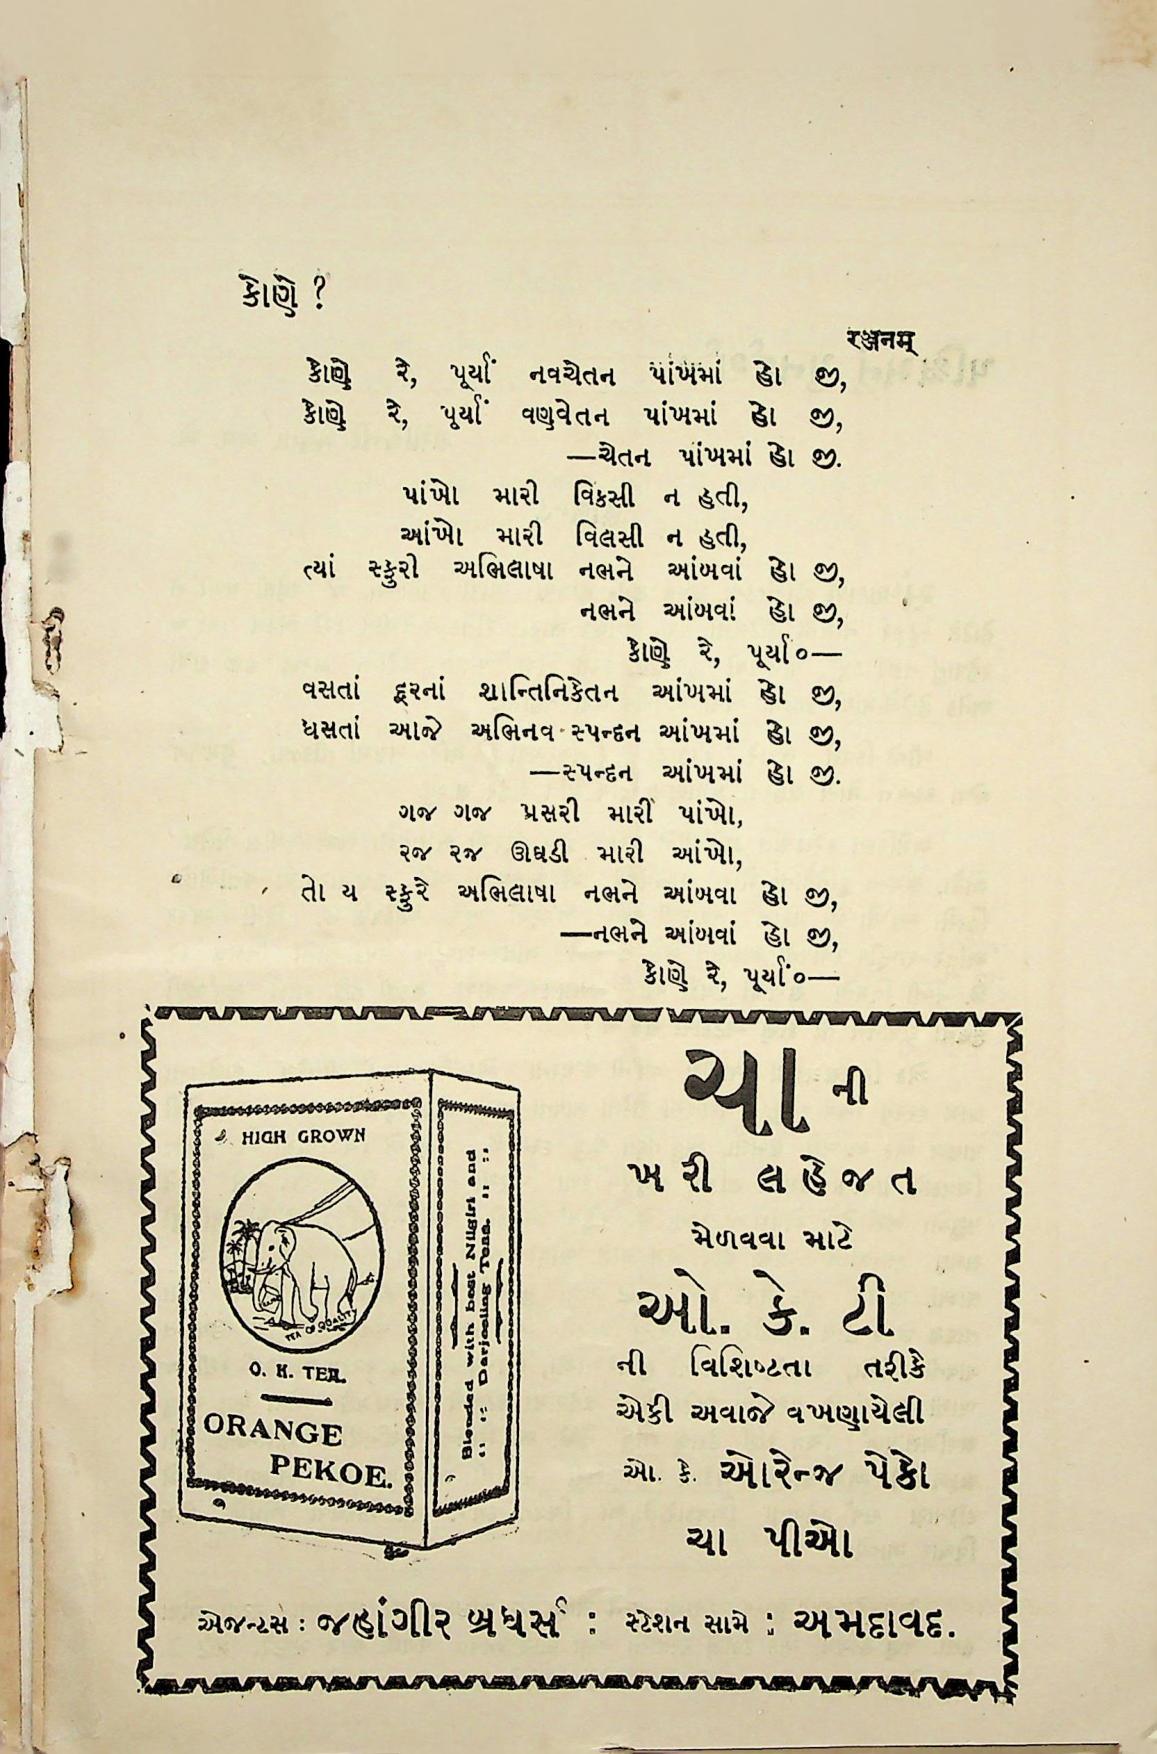 કોણે ?
रञ्जनम्
કોણે રે, પૂર્યાં નવચેતન પાંખમાં હો જી,
કોણે રે, પૂર્યાં વણવેતન પાંખમાં હો જી,
—ચેતન પાંખમાં હો જી.
પાંખો મારી વિકસી ન હતી,
આંખો મારી વિલસી ન હતી,
ત્યાં સ્ફુરી અભિલાષા નભને આંબવાં હો જી,
નભને આંબવાં હો જી,
કોણે રે, પૂર્યાં૦—
વસતાં દૂરનાં શાન્તિનિકેતન આંખમાં હો જી,
ધસતાં આજે અભિનવ સ્પન્દન આંખમાં હો જી,
—સ્પન્દન આંખમાં હો જી.
ગજ ગજ પ્રસરી મારી પાંખો,
રજ રજ ઊઘડી મારી આંખો,
તો ય સ્ફુરે અભિલાષા નભને આંબવા હો જી,
—નભને આંબવાં હો જી,
કોણે રે, પૂર્યાં૦—
HIGH GROWN
TEA OF QUALITY
O. K. TEA.
ORANGE
PEKOE.
Blended with best Nilgiri and
:: :: Darjeeling Teas. :: ::
ચા ની
ખરી લહેજત
મેળવવા માટે
ઓ. કે. ટી
ની વિશિષ્ટતા તરીકે
એકી અવાજે વખણાયેલી
ઓ. કે. ઓરેન્જ પેકો
ચા પીઓ
એજન્ટસ : જહાંગીર બ્રધર્સ : સ્ટેશન સામે : અમદાવદ.